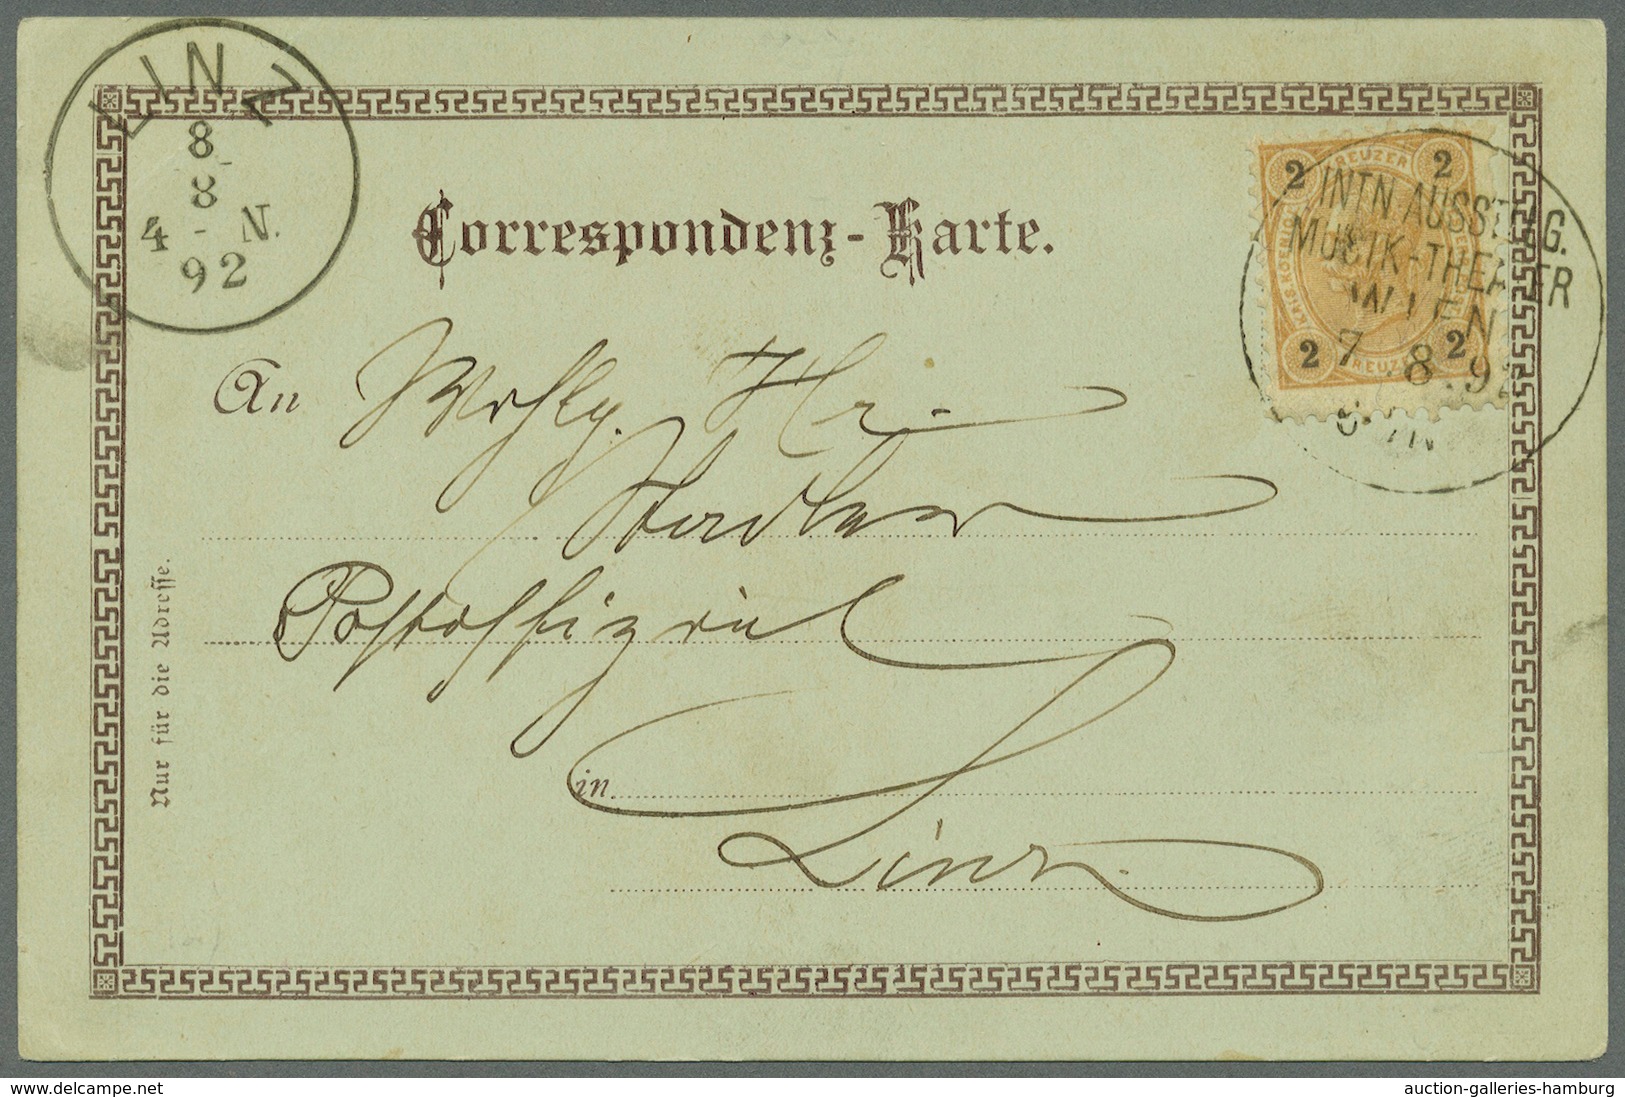 LINZ
8
8
4 - N.
92
Correspondenz-Karte.
2 KREUZER 2
INTN AUSSTLLG.
MUSIK-THEATER
WIEN
7.8.92
2 KREUZER 2
An Wohlg. Hr.
Postoffizial
in
Linz.
Nur für die Adresse.
www.delcampe.net
auction-galleries-hamburg